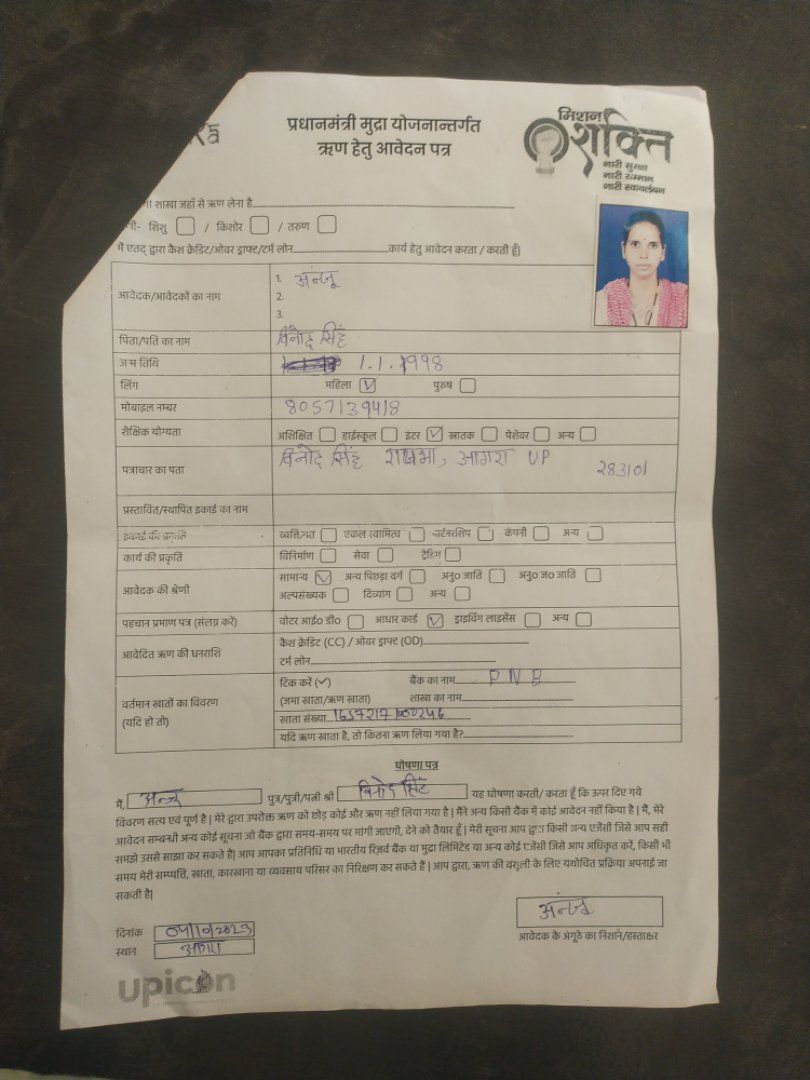 प्रधानमंत्री मुद्रा योजनान्तर्गत
ऋण हेतु आवेदन पत्र
मिशन
शक्ति
नारी सुरक्षा
नारी सम्मान
नारी स्वावलंबन
शाखा जहाँ से ऋण लेना है
शिशु / किशोर / तरुण
में एतद् द्वारा कैश क्रेडिट/ओवर ड्राफ्ट/टर्म लोन कार्य हेतु आवेदन करता / करती हूँ|
आवेदक/आवेदकों का नाम 1. अन्जू
2.
3.
पिता/पति का नाम विनोद सिंह
जन्म तिथि 1.1.1998
लिंग महिला ✓ पुरुष
मोबाइल नम्बर 8057139418
शैक्षिक योग्यता अशिक्षित हाईस्कूल इंटर ✓ स्नातक पेशेवर अन्य
पत्राचार का पता विनोद सिंह आगरा UP 283101
प्रस्तावित/स्थापित इकाई का नाम
इकाई की प्रकृति व्यक्तिगत एकल स्वामित्व पार्टनरशिप कंपनी अन्य
कार्य की प्रकृति विनिर्माण सेवा ट्रेडिंग
आवेदक की श्रेणी सामान्य ✓ अन्य पिछड़ा वर्ग अनु० जाति अनु० ज० जाति
अल्पसंख्यक दिव्यांग अन्य
पहचान प्रमाण पत्र (संलग्न करें) वोटर आई० डी० आधार कार्ड ✓ ड्राइविंग लाइसेंस अन्य
आवेदित ऋण की धनराशि कैश क्रेडिट (CC) / ओवर ड्राफ्ट (OD)
टर्म लोन
वर्तमान खातों का विवरण टिक करें (✓) बैंक का नाम PNB
(यदि हो तो) (जमा खाता/ऋण खाता) शाखा का नाम
खाता संख्या
यदि ऋण खाता है, तो कितना ऋण लिया गया है?
घोषणा पत्र
मैं, अन्जू पुत्र/पुत्री/पत्नी श्री विनोद सिंह यह घोषणा करती/ करता हूँ कि ऊपर दिए गये
विवरण सत्य एवं पूर्ण है | मेरे द्वारा उपरोक्त ऋण को छोड़ कोई और ऋण नहीं लिया गया है | मैंने अन्य किसी बैंक में कोई आवेदन नहीं किया है | मैं, मेरे
आवेदन सम्बन्धी अन्य कोई सूचना जो बैंक द्वारा समय-समय पर मांगी जाएगी, देने को तैयार हूँ | मेरी सूचना आप द्वारा किसी अन्य एजेंसी जिसे आप सही
समझे उससे साझा कर सकते है| आप आपका प्रतिनिधि या भारतीय रिज़र्व बैंक या मुद्रा लिमिटेड या अन्य कोई एजेंसी जिसे आप अधिकृत करें, किसी भी
समय मेरी सम्पत्ति, खाता, कारखाना या व्यवसाय परिसर का निरिक्षण कर सकते हैं | आप द्वारा, ऋण की वसूली के लिए यथोचित प्रक्रिया अपनाई जा
सकती है|
अन्जू
दिनांक 04/10/2023
स्थान आगरा
आवेदक के अंगूठे का निशान/हस्ताक्षर
upicon